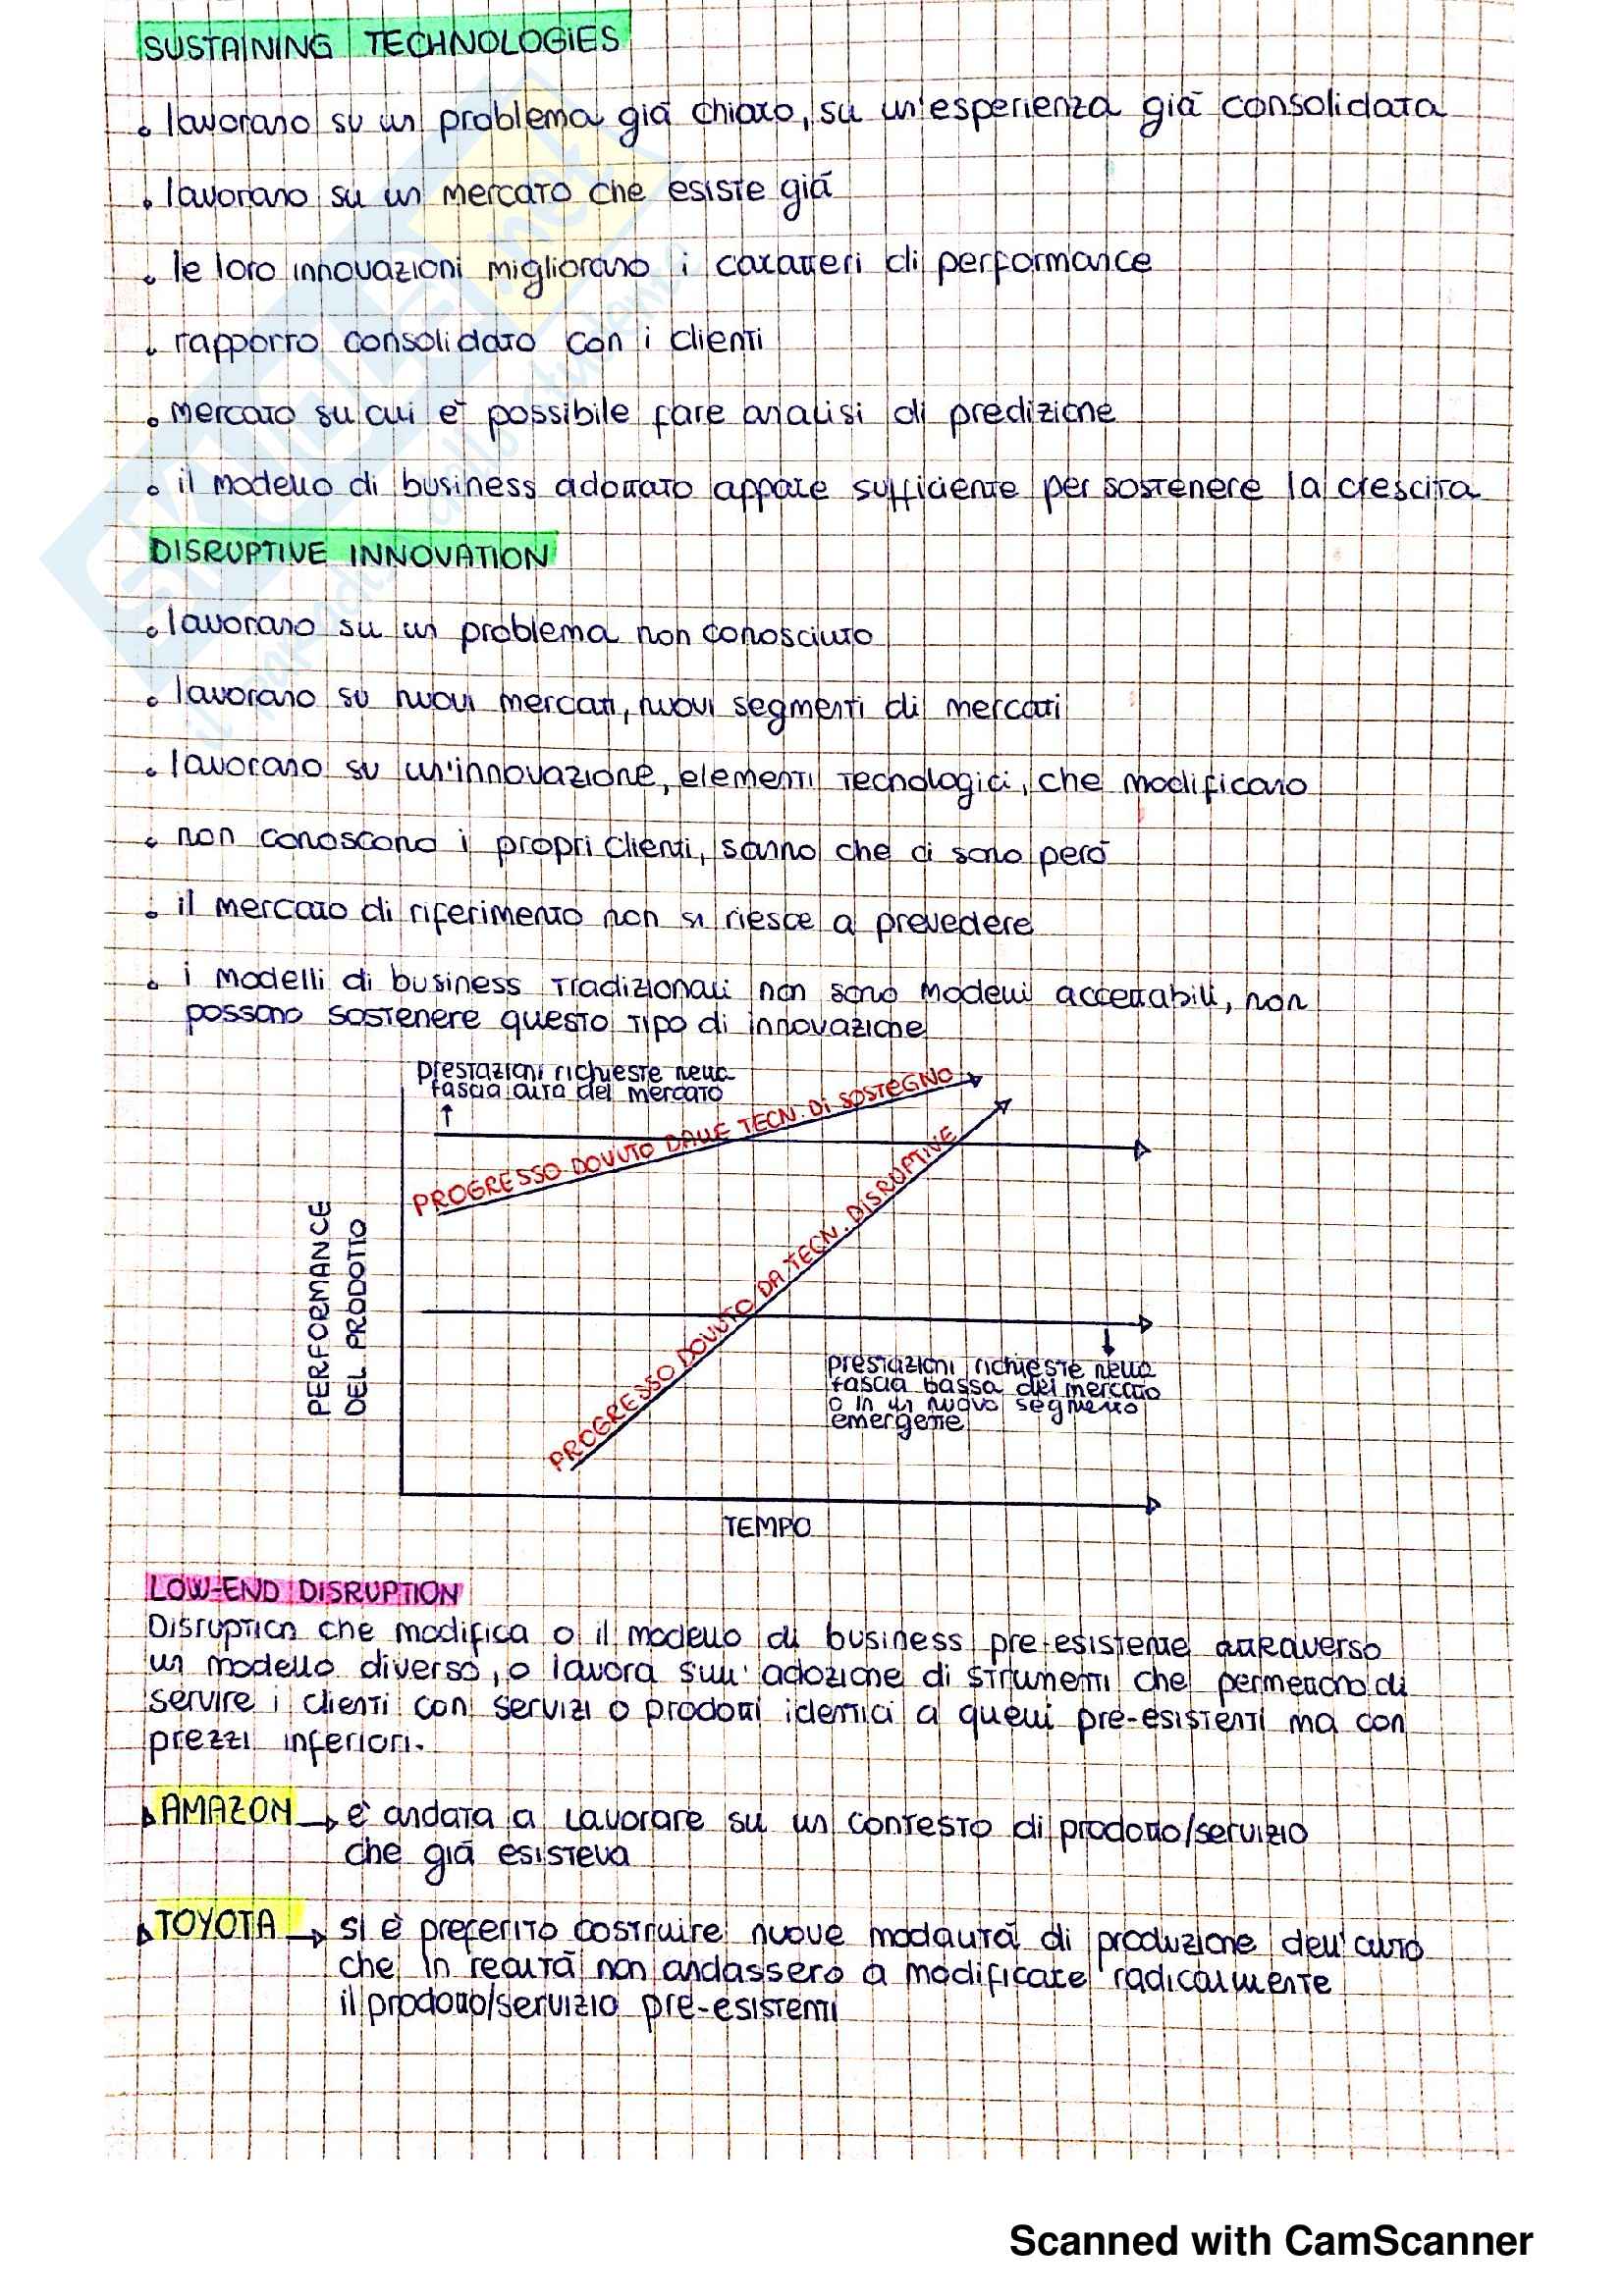 SUSTAINING TECHNOLOGIES
• lavorano su un problema già chiaro, su un'esperienza già consolidata
• lavorano su un mercato che esiste già
• le loro innovazioni migliorano i caratteri di performance
• rapporto consolidato con i clienti
• mercato su cui è possibile fare analisi di predizione
• il modello di business adottato appare sufficiente per sostenere la crescita
DISRUPTIVE INNOVATION
• lavorano su un problema non conosciuto
• lavorano su nuovi mercati, nuovi segmenti di mercati
• lavorano su un'innovazione, elementi tecnologici, che modificano
• non conoscono i propri clienti, sanno che ci sono però
• il mercato di riferimento non si riesce a prevedere
• i modelli di business tradizionali non sono modelli accettabili, non
possono sostenere questo tipo di innovazione
prestazioni richieste nella
fascia alta del mercato
PROGRESSO DOVUTO DALLE TECN. DI SOSTEGNO
PROGRESSO DOVUTO DA TECN. DISRUPTIVE
PERFORMANCE
DEL PRODOTTO
prestazioni richieste nella
fascia bassa del mercato
o in un nuovo segmento
emergente
TEMPO
LOW-END DISRUPTION
Disruption che modifica o il modello di business pre-esistente attraverso
un modello diverso, o lavora sull'adozione di strumenti che permettono di
servire i clienti con servizi o prodotti identici a quelli pre-esistenti ma con
prezzi inferiori.
AMAZON → è andata a lavorare su un contesto di prodotto/servizio
che già esisteva
TOYOTA → si è preferito costruire nuove modalità di produzione dell'auto
che in realtà non andassero a modificare radicalmente
il prodotto/servizio pre-esistenti
SKUOLA.net
il paradiso dello studente
Scanned with CamScanner